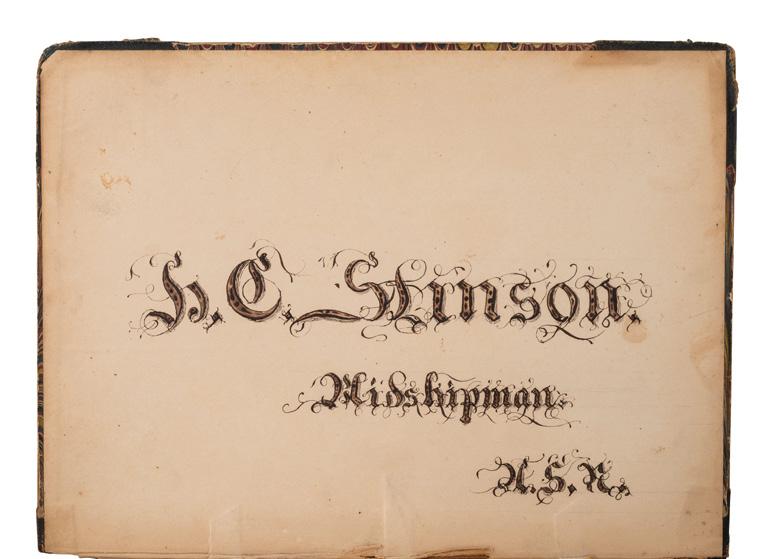 H. C. Stinson.
Midshipman.
U. S. N.